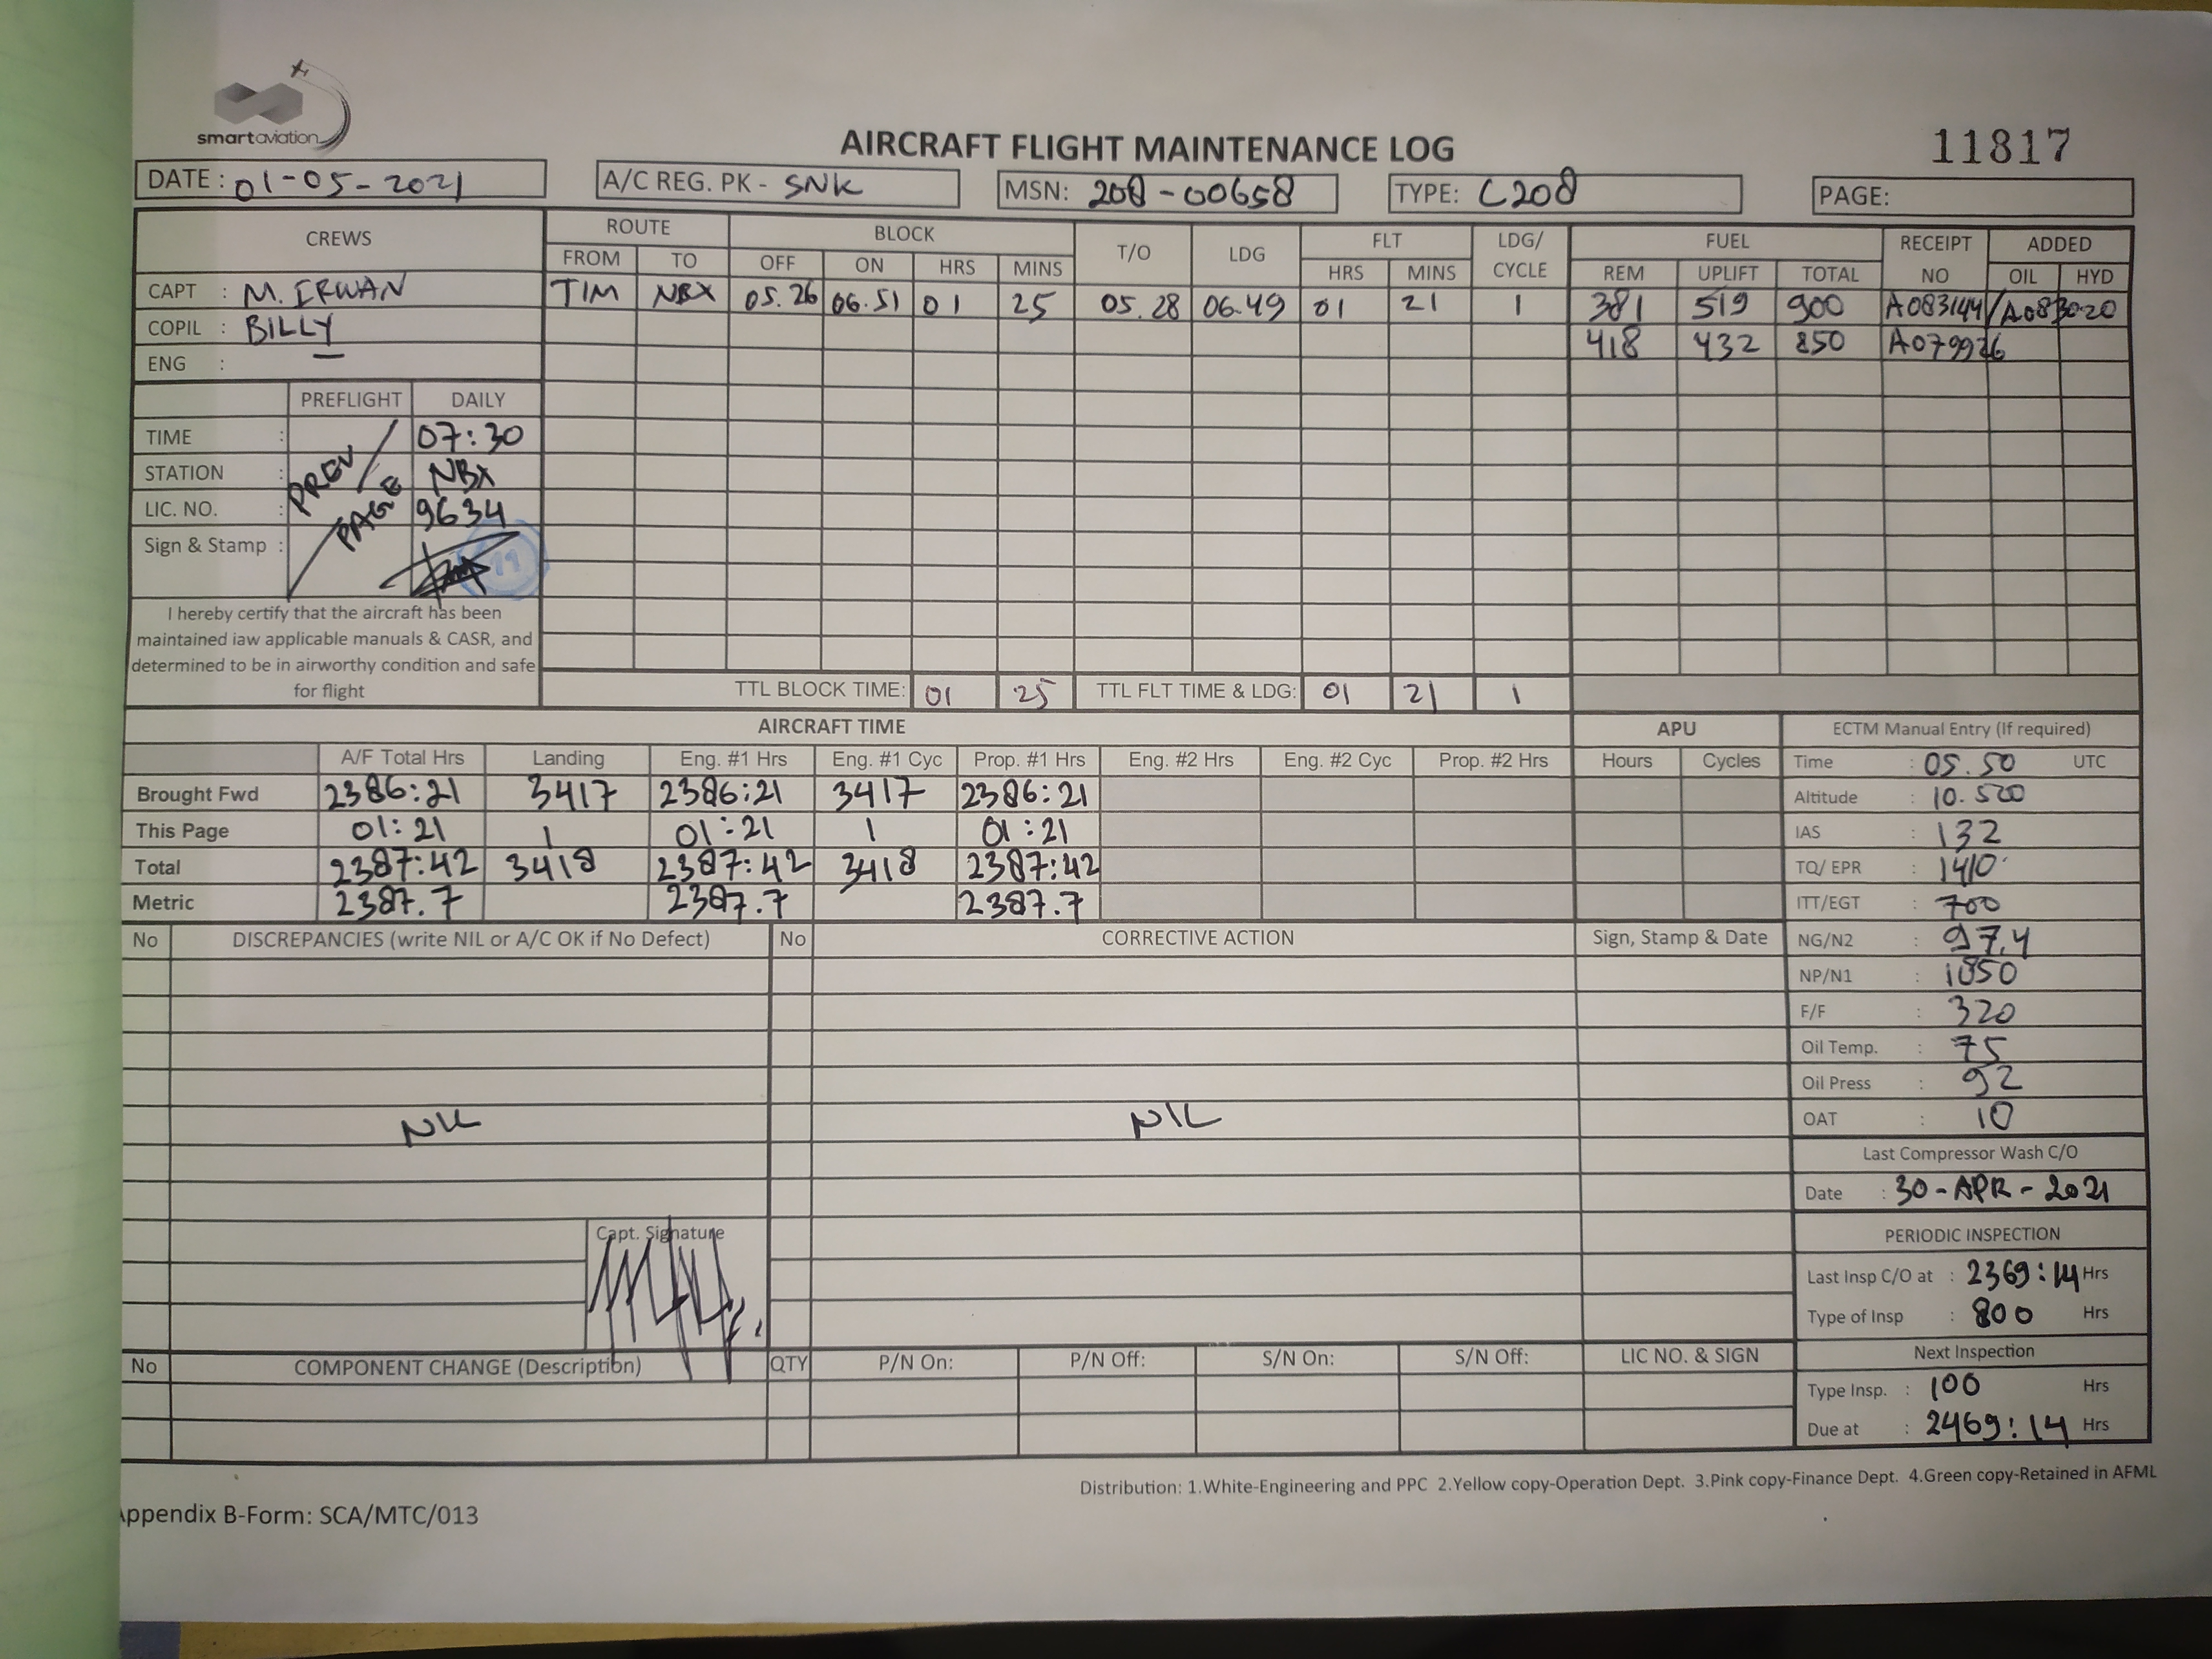 smartaviation
AIRCRAFT FLIGHT MAINTENANCE LOG
11817
DATE : 01-05-2021 A/C REG. PK - SNK MSN: 208-00658 TYPE: C208 PAGE:
CREWS ROUTE BLOCK T/O LDG FLT LDG/ CYCLE FUEL RECEIPT NO ADDED
FROM TO OFF ON HRS MINS HRS MINS REM UPLIFT TOTAL OIL HYD
CAPT : M. IRWAN TIM NBX 05.26 06.51 01 25 05.28 06.49 01 21 1 381 519 900 A083144/A083020
COPIL : BILLY 418 432 850 A079926
ENG : —
PREFLIGHT DAILY
TIME : 07:30
STATION : NBX
LIC. NO. : 9634
Sign & Stamp :
PREV / PAGE
11
I hereby certify that the aircraft has been
maintained iaw applicable manuals & CASR, and
determined to be in airworthy condition and safe
for flight
TTL BLOCK TIME: 01 25 TTL FLT TIME & LDG: 01 21 1
AIRCRAFT TIME APU ECTM Manual Entry (If required)
A/F Total Hrs Landing Eng. #1 Hrs Eng. #1 Cyc Prop. #1 Hrs Eng. #2 Hrs Eng. #2 Cyc Prop. #2 Hrs Hours Cycles
Brought Fwd 2386:21 3417 2386:21 3417 2386:21
This Page 01:21 1 01:21 1 01:21
Total 2387:42 3418 2387:42 3418 2387:42
Metric 2387.7 2387.7 2387.7
Time : 05.50 UTC
Altitude : 10.500
IAS : 132
TQ/ EPR : 1410
ITT/EGT : 700
NG/N2 : 97.4
NP/N1 : 1850
F/F : 320
Oil Temp. : 75
Oil Press : 92
OAT : 10
Last Compressor Wash C/O
Date : 30-APR-2021
PERIODIC INSPECTION
Last Insp C/O at : 2369:14 Hrs
Type of Insp : 800 Hrs
Next Inspection
Type Insp. : 100 Hrs
Due at : 2469:14 Hrs
No DISCREPANCIES (write NIL or A/C OK if No Defect) No CORRECTIVE ACTION Sign, Stamp & Date
NIL NIL
Capt. Signature
No COMPONENT CHANGE (Description) QTY P/N On: P/N Off: S/N On: S/N Off: LIC NO. & SIGN
Distribution: 1.White-Engineering and PPC 2.Yellow copy-Operation Dept. 3.Pink copy-Finance Dept. 4.Green copy-Retained in AFML
Appendix B-Form: SCA/MTC/013